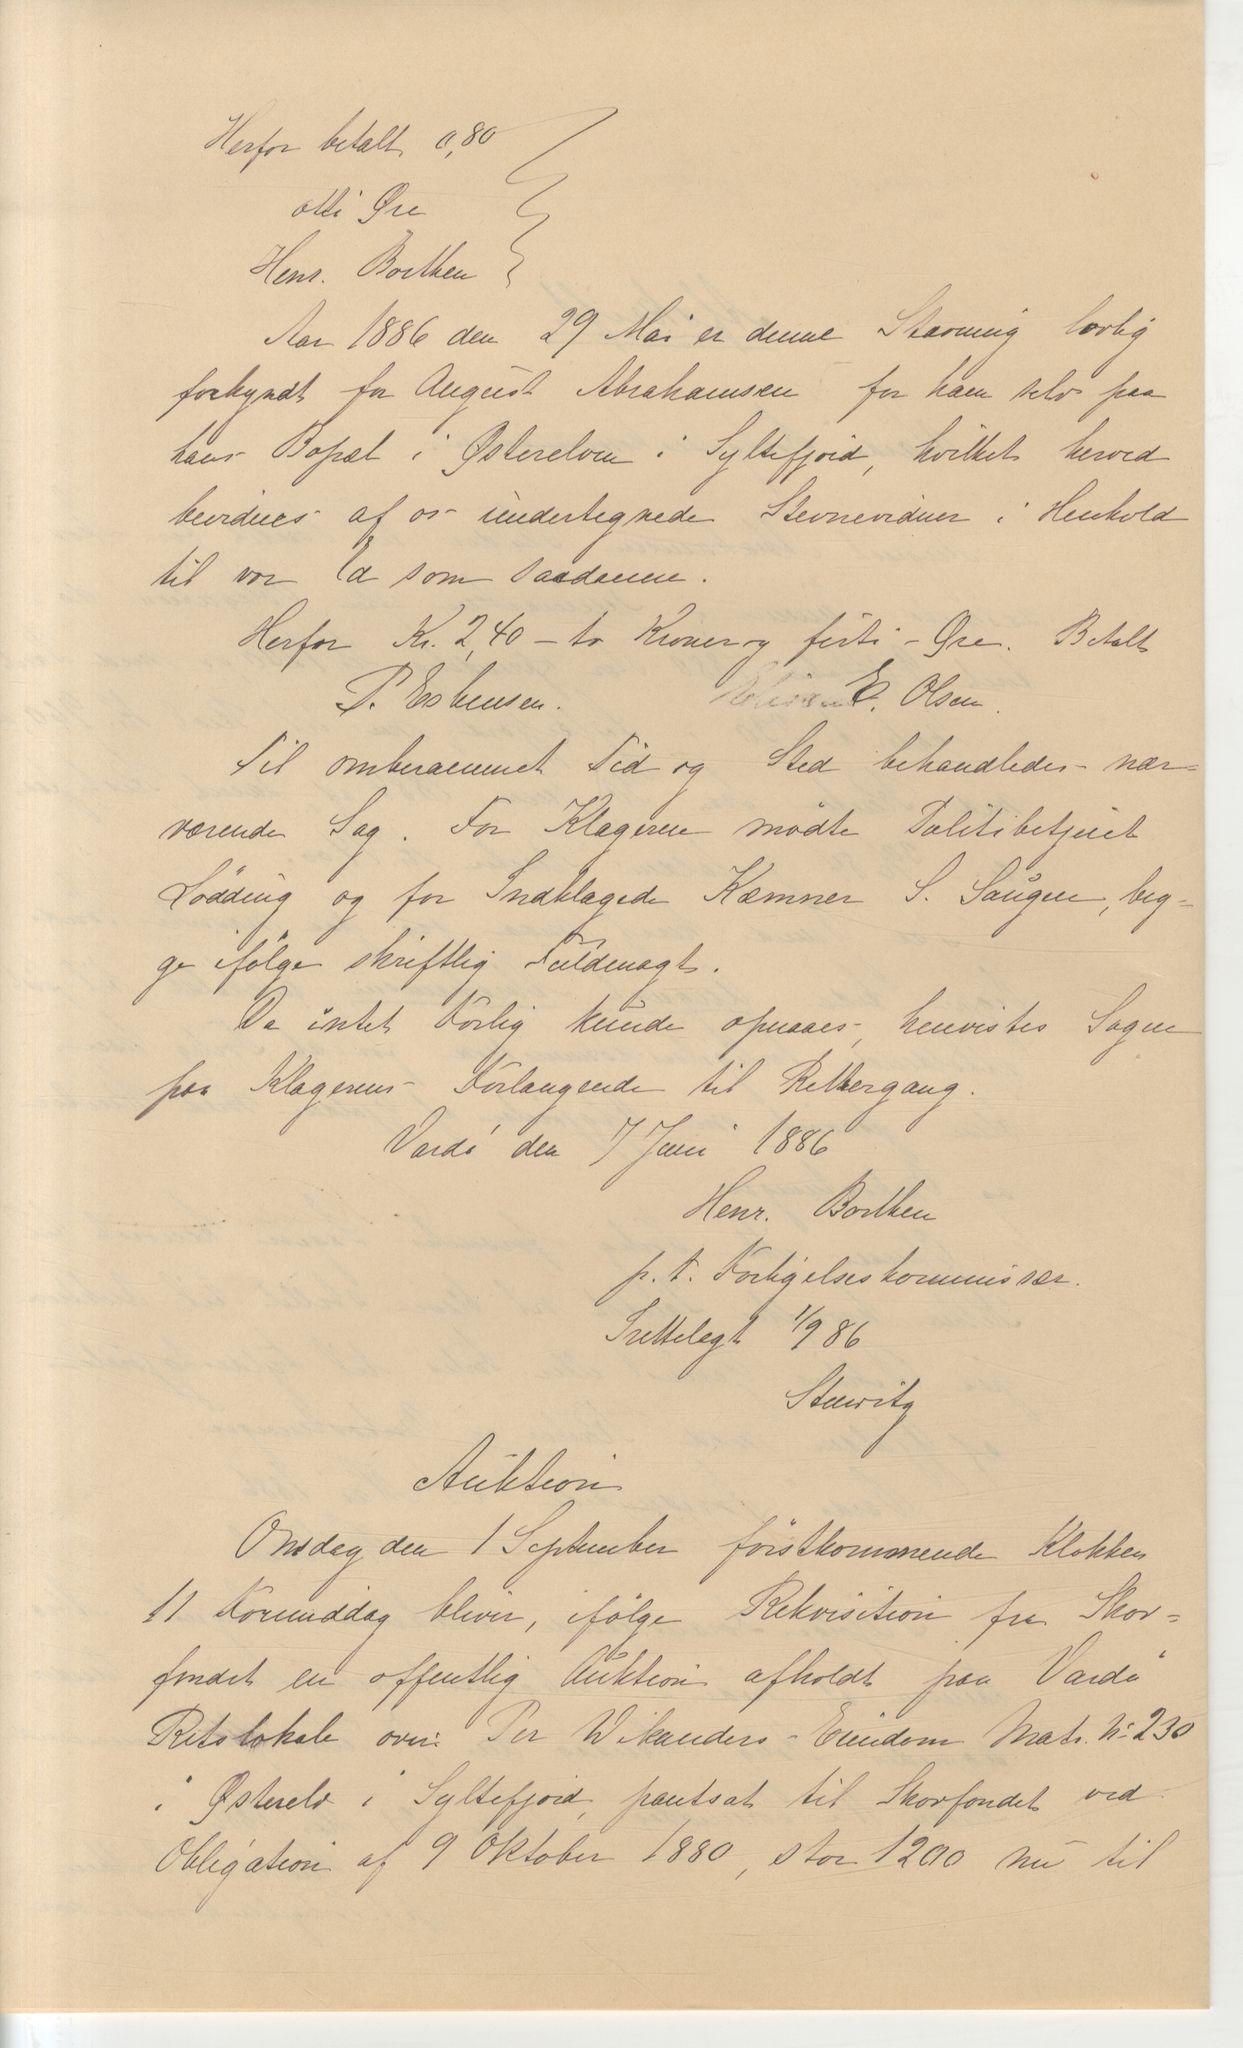 Herfor betalt 0,80
otti Øre
Henr. Borthen
Aar 1886 den 29 Mai er denne Stævning lovlig
forkyndt for August Abrahamsen for ham selv paa
hans Bopæl i Østerelven i Syltefjord, hvilket herved
bevidnes af os undertegnede Stevnevidner i Henhold
til vor Ed som saadanne.
Herfor Kr. 2,40 - to Kroner og firti - Øre. Betalt
P. Esbensen. E. Olsen.
Til omberammet Tid og Sted behandledes nær-
værende Sag. For Klageren mødte Politibetjent
Lødding og for Indklagede Kæmner S. Saugen, beg-
ge ifølge skriftlig Fuldmagt.
Da intet Forlig kunde opnaaes, henvistes Sagen
paa Klagerens Forlangende til Rettergang.
Vardö den 7 Juni 1886
Henr. Borthen
p.t. Forligelseskommissær.
Irettelagt 1/9 86
Steewitz
Auktion
Onsdag den 1 September førstkommende Klokken
11 Formiddag bliver, ifølge Rekvisition fra Skov-
fondet en offentlig Auktion afholdt paa Vardö
Retslokale over Per Wikanders Eiendom Matr. No 230
i Østerelv i Syltefjord, pantsat til Skovfondet ved
Obligation af 9 Oktober 1880, stor 1200 nu til